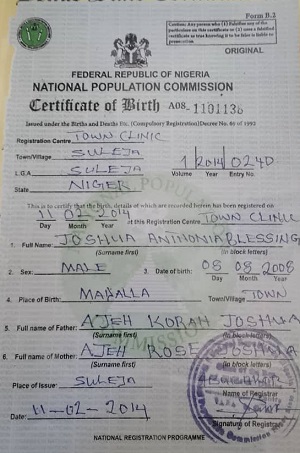 Form B.2
ORIGINAL
FEDERAL REPUBLIC OF NIGERIA
NATIONAL POPULATION COMMISSION
Certificate of Birth A08 1101138
Issued under the Births and Deaths Etc. (Compulsory Registration) Decree No. 69 of 1992
Registration Centre TOWN CLINIC
Town/Village SULEJA
L.G.A SULEJA 1 2014 024D
Volume Year Entry No.
State NIGER
This is to certify that the birth, details of which are recorded herein has been registered on
11 02 2014 at this Registration Centre TOWN CLINIC
Day Month Year
1. Full Name: JOSHUA ANTHONIA BLESSING
(Surname first) (in block letters)
2. Sex: MALE 3. Date of birth: 08 08 2008
Day Month Year
4. Place of Birth: MADALLA Town/Village TOWN
5. Full name of Father: AJEH KORAH JOSHUA
(Surname first) (in block letters)
6. Full name of Mother: AJEH ROSE JOSHUA
(Surname first) (in block letters)
Place of issue: SULEJA
Name of Registrar
Date: 11-02-2014
Signature of Registrar
NATIONAL REGISTRATION PROGRAMME